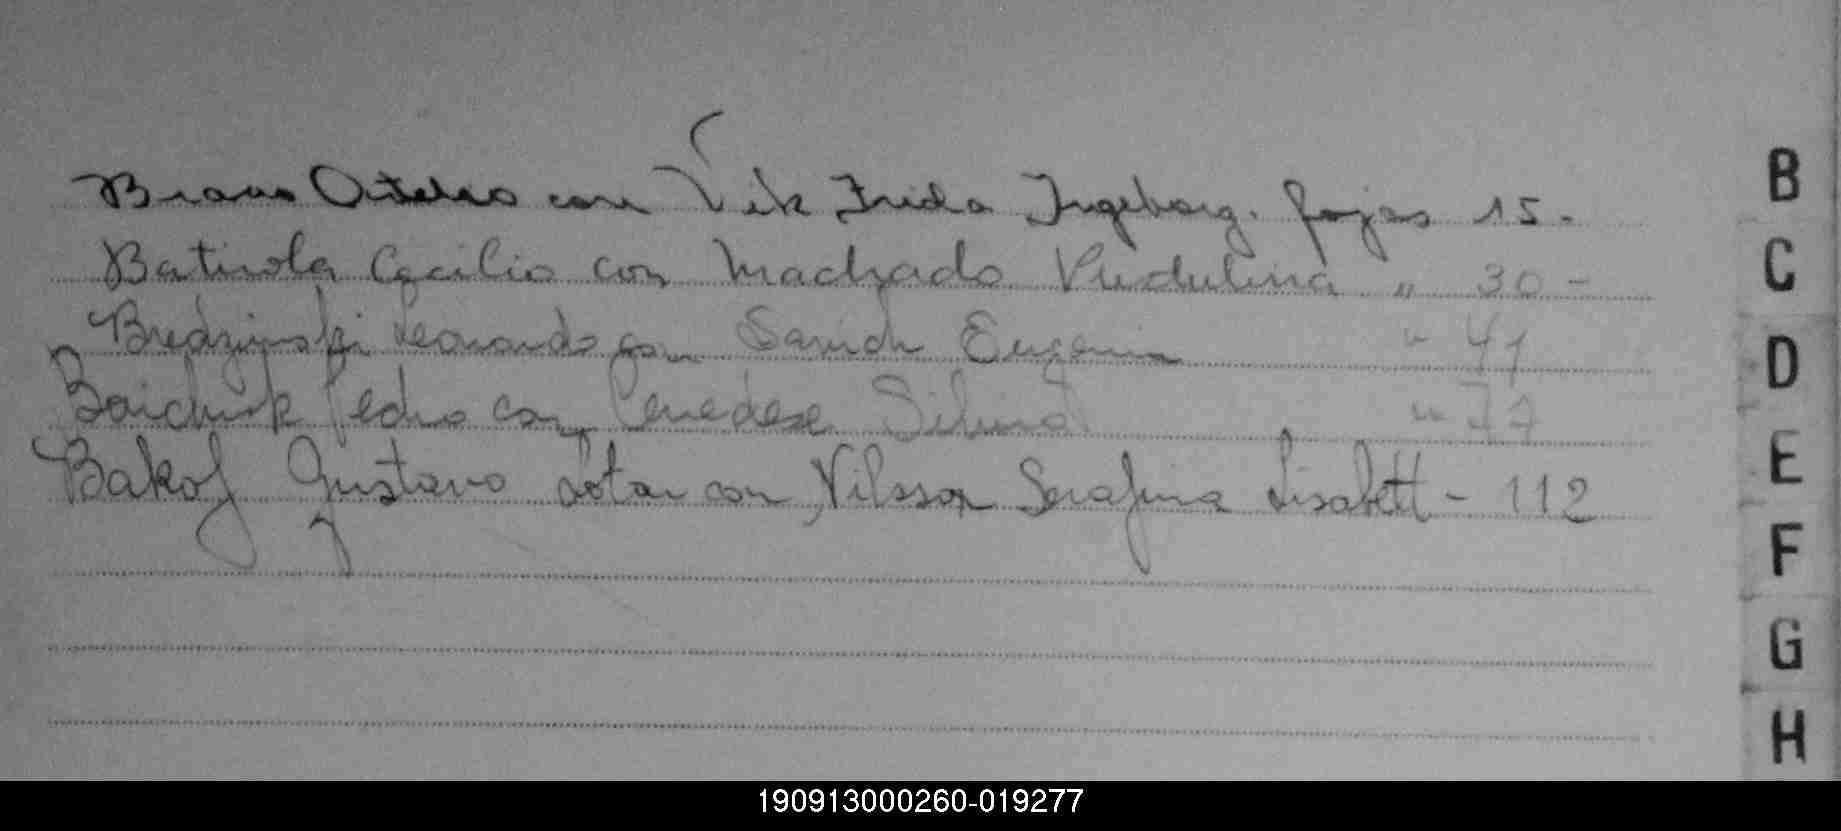 Bravo Otelso con Vik Frida Ingeborg. fojas 15.
Batirola Cecilio con Machado Vledulina " 30 -
Bredzinski Leonardo con Savich Eugenia " 41
Boichuk Pedro con Penedese " 77
Bakof Gustavo Lotar con Nilsson Serafina Lisabett - 112
B
C
D
E
F
G
H
190913000260-019277